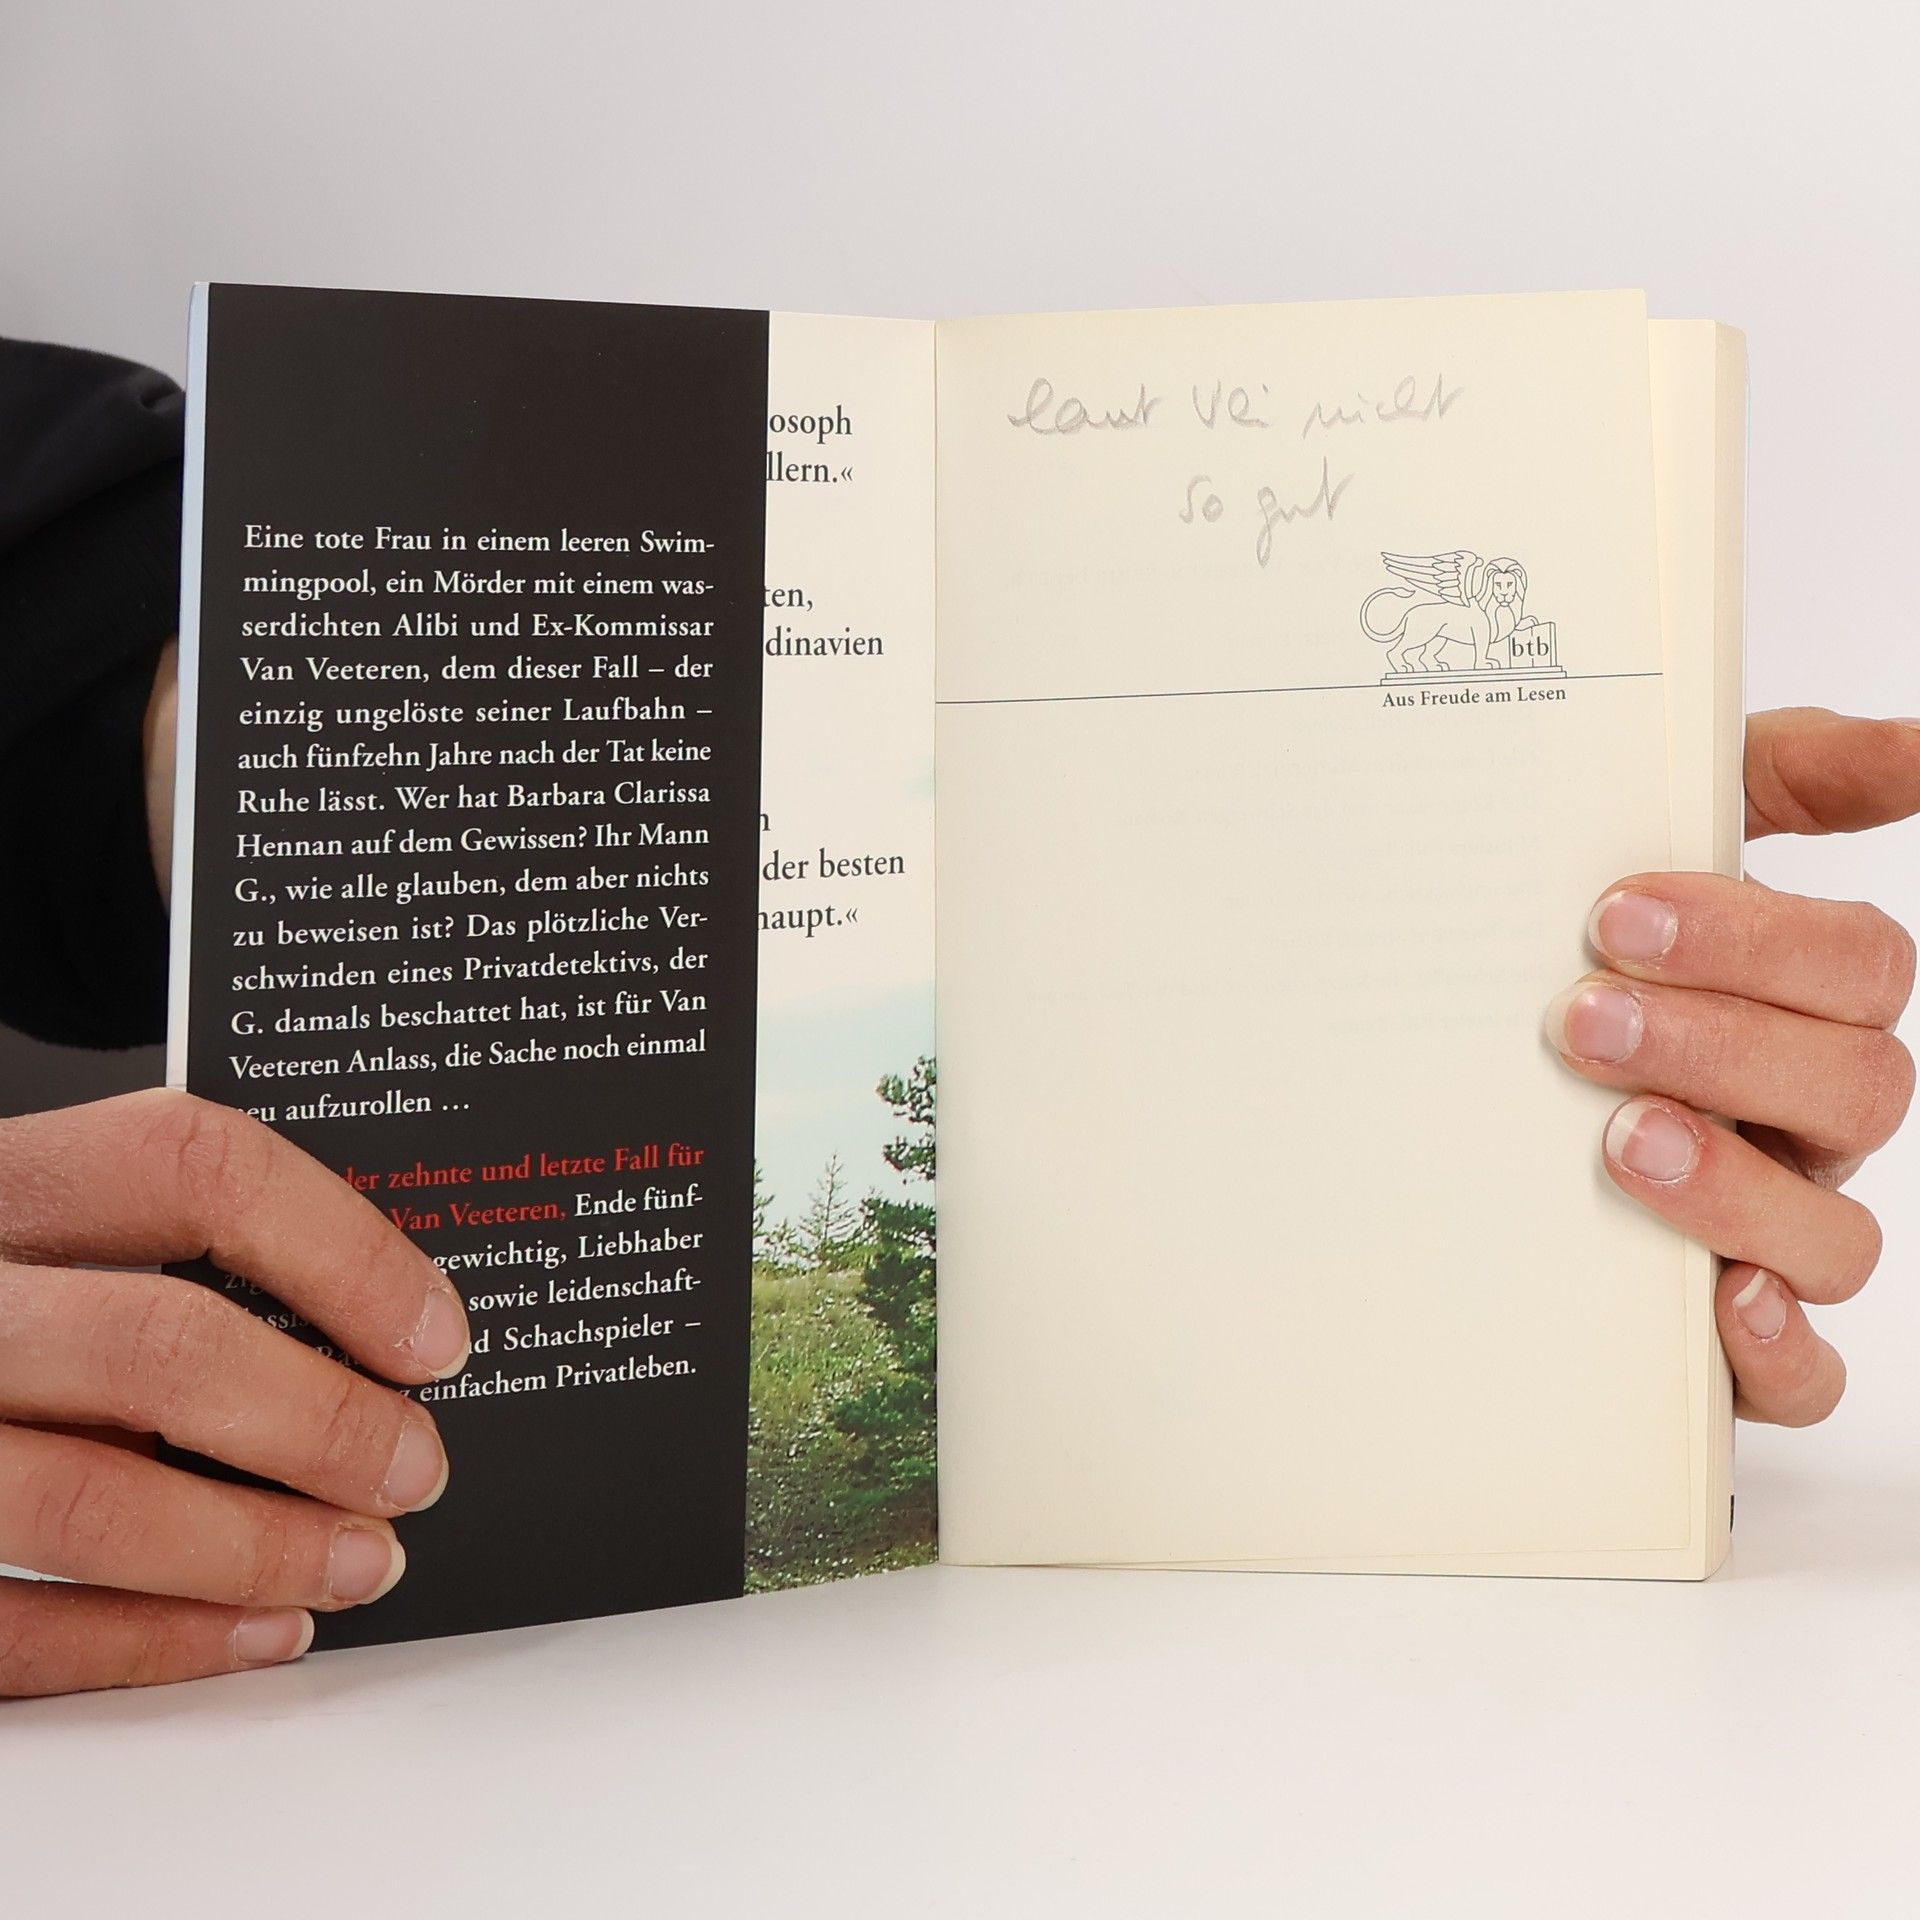 Eine tote Frau in einem leeren Swim-
mingpool, ein Mörder mit einem was-
serdichten Alibi und Ex-Kommissar
Van Veeteren, dem dieser Fall – der
einzig ungelöste seiner Laufbahn –
auch fünfzehn Jahre nach der Tat keine
Ruhe lässt. Wer hat Barbara Clarissa
Hennan auf dem Gewissen? Ihr Mann
G., wie alle glauben, dem aber nichts
zu beweisen ist? Das plötzliche Ver-
schwinden eines Privatdetektivs, der
G. damals beschattet hat, ist für Van
Veeteren Anlass, die Sache noch einmal
eu aufzurollen ...
er zehnte und letzte Fall für
Van Veeteren, Ende fünf-
gewichtig, Liebhaber
sowie leidenschaft-
d Schachspieler –
einfachem Privatleben.
osoph
llern.«
ten,
dinavien
der besten
haupt.«
laut nicht
so gut
btb
Aus Freude am Lesen